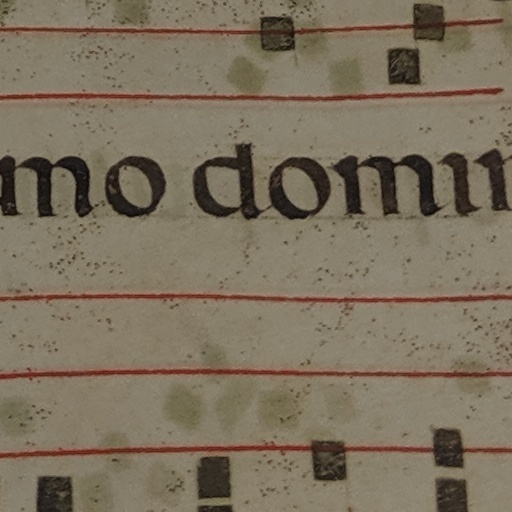 mo domin